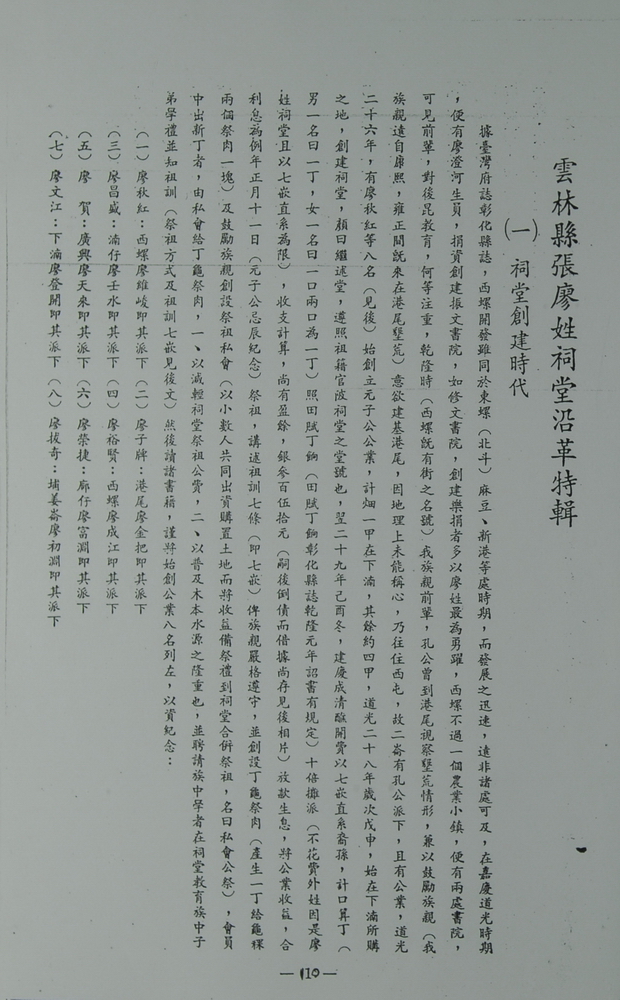 雲林縣張廖姓祠堂沿革特輯
(一) 祠堂創建時代
據臺灣府誌彰化縣誌，西螺開發雖同於東螺（北斗）麻豆、新港等處時期，而發展之迅速，遠非諸處可及，在嘉慶道光時期
，便有廖澄河生員，捐資創建振文書院，如修文書院，創建樂捐者多以廖姓最為勇躍，西螺不過一個農業小鎮，便有兩處書院，
可見前輩，對後昆教育，何等注重，乾隆時（西螺旣有街之名號）我族親前輩，孔公曾到港尾視察墾荒情形，兼以鼓勵族親（我
族親遠自康熙，雍正間旣來在港尾墾荒）意欲建基港尾，因地理上未能稱心，乃往住西屯，故二崙有孔公派下，且有公業，道光
二十六年，有廖秋紅等八名（見後）始創立元子公公業，計畑一甲在下湳，其餘約四甲，道光二十八年歲次戊申，始在下湳所購
之地，創建祠堂，顏曰繼述堂，遵照祖籍官陂祠堂之堂號也，翌二十九年己酉冬，建慶成清醮開費以七嵌直系裔孫，計口算丁（
男一名曰一丁，女一名曰一口兩口為一丁）照田賦丁餉（田賦丁餉彰化縣誌乾隆元年詔書有規定）十倍攤派（不花費外姓因是廖
姓祠堂且以七嵌直系為限），收支計算，尚有盈餘，銀參百伍拾元（嗣後倒債而借據尚存見後相片）放款生息，將公業收益，合
利息為例年正月十一日（元子公忌辰紀念）祭祖，講述祖訓七條（即七嵌）俾族親嚴格遵守，並創設丁龜祭肉（產生一丁給龜粿
兩個祭肉一塊）及鼓勵族親創設祭祖私會（以小數人共同出資購置土地而將收益備祭禮到祠堂合併祭祖，名曰私會公祭），會員
中出新丁者，由私會給丁龜祭肉，一、以減輕祠堂祭祖公費，二、以普及木本水源之隆重也，並聘請族中學者在祠堂教育族中子
弟學禮並知祖訓（祭祖方式及祖訓七嵌見後文）然後讀諸書籍，謹將始創公業八名列左，以資紀念：
（一）廖秋紅：西螺廖維峻即其派下（二）廖子牌：港尾廖金把即其派下
（三）廖昌盛：湳仔廖壬水即其派下（四）廖裕賢：西螺廖成江即其派下
（五）廖　賀：廣興廖天來即其派下（六）廖榮捷：廍仔廖富淵即其派下
（七）廖文江：下湳廖登開即其派下（八）廖拔奇：埔姜崙廖初淵即其派下
— 110 —